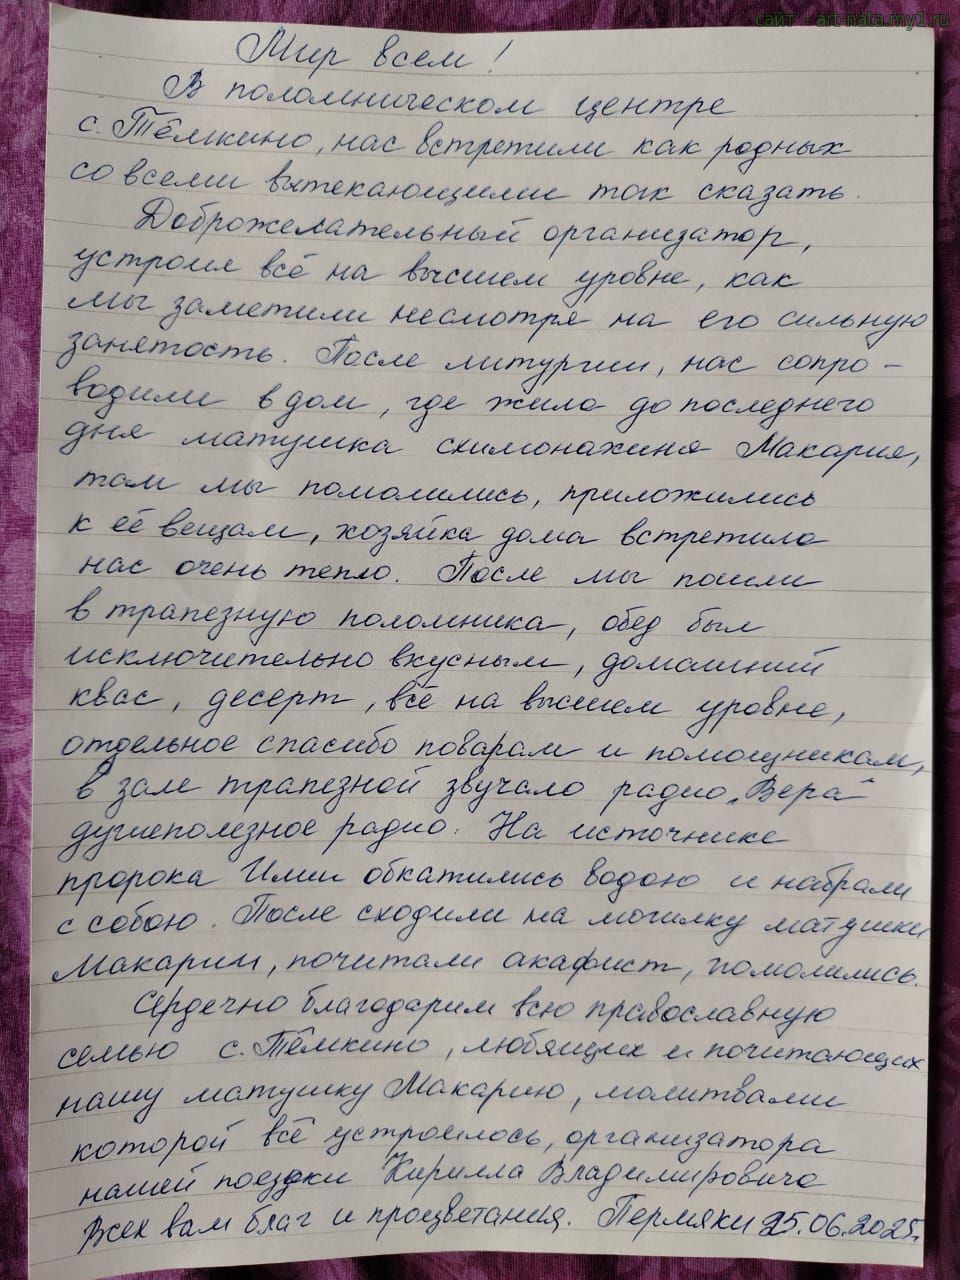 сайт - art-nata.my1.ru
Мир всем!
В поломническом центре
с. Тёмкино, нас встретили как родных
со всеми вытекающими так сказать.
Доброжелательный организатор,
устроил всё на высшем уровне, как
мы заметили несмотря на его сильную
занятость. После литургии, нас сопро-
водили в дом, где жила до последнего
дня матушка схимонахиня Макария,
там мы помолились, приложились
к её вещам, хозяйка дома встретила
нас очень тепло. После мы пошли
в трапезную поломника, обед был
исключительно вкусным, домашний
квас, десерт, всё на высшем уровне,
отдельное спасибо поварам и помощникам,
в зале трапезной звучало радио „Вера"
душеполезное радио. На источнике
пророка Илии обкатились водою и набрали
с собою. После сходили на могилку матушки
Макарии, почитали акафист, помолились.
Сердечно благодарим всю православную
семью с. Тёмкино, любящих и почитающих
нашу матушку Макарию, молитвами
которой всё устроилось, организатора
нашей поездки Кирилла Владимировича
Всех вам благ и процветания. Пермяки 25.06.2025г.